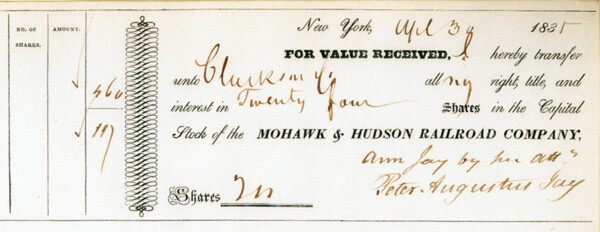 NO. OF SHARES.
AMOUNT.
New York, Apl 30 1835
FOR VALUE RECEIVED, I hereby transfer
unto Clarkson & Co all my right, title, and
interest in Twenty four Shares in the Capital
Stock of the MOHAWK & HUDSON RAILROAD COMPANY,
Ann Jay by her att.
Shares
Peter Augustus Jay